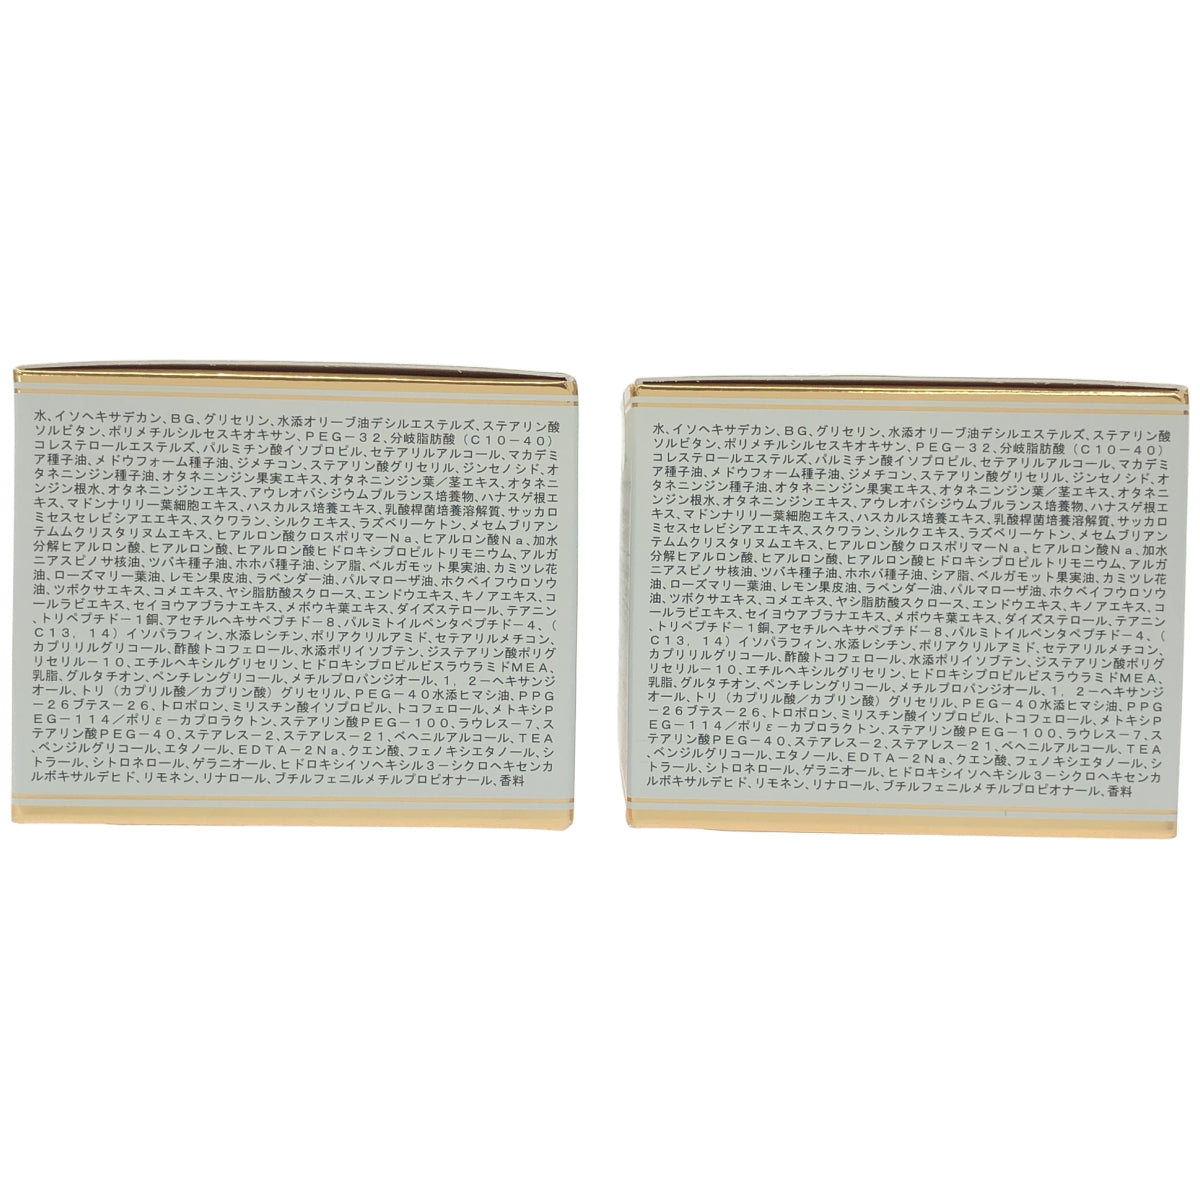 水、イソヘキサデカン、BG、グリセリン、水添オリーブ油デシルエステルズ、ステアリン酸
ソルビタン、ポリメチルシルセスキオキサン、PEG-32、分岐脂肪酸(C10-40)
コレステロールエステルズ、パルミチン酸イソプロピル、セテアリルアルコール、マカデミ
ア種子油、メドウフォーム種子油、ジメチコン、ステアリン酸グリセリル、ジンセノシド、オ
タネニンジン種子油、オタネニンジン果実エキス、オタネニンジン葉/茎エキス、オタネニ
ンジン根水、オタネニンジンエキス、アウレオバシジウムプルランス培養物、ハナスゲ根エ
キス、マドンナリリー葉細胞エキス、ハスカルス培養エキス、乳酸桿菌培養溶解質、サッカロ
ミセスセレビシアエエキス、スクワラン、シルクエキス、ラズベリーケトン、メセムブリアン
テムムクリスタリヌムエキス、ヒアルロン酸クロスポリマーNa、ヒアルロン酸Na、加水
分解ヒアルロン酸、ヒアルロン酸、ヒアルロン酸ヒドロキシプロピルトリモニウム、アルガ
ニアスピノサ核油、ツバキ種子油、ホホバ種子油、シア脂、ベルガモット果実油、カミツレ花
油、ローズマリー葉油、レモン果皮油、ラベンダー油、パルマローザ油、ホクベイフウロソウ
油、ツボクサエキス、コメエキス、ヤシ脂肪酸スクロース、エンドウエキス、キノアエキス、コ
ールラビエキス、セイヨウアブラナエキス、メボウキ葉エキス、ダイズステロール、テアニン
、トリペプチド-1銅、アセチルヘキサペプチド-8、パルミトイルペンタペプチド-4、(
C13,14)イソパラフィン、水添レシチン、ポリアクリルアミド、セテアリルメチコン、
カプリリルグリコール、酢酸トコフェロール、水添ポリイソブテン、ジステアリン酸ポリグ
リセリル-10、エチルヘキシルグリセリン、ヒドロキシプロピルビスラウラミドMEA、
乳脂、グルタチオン、ペンチレングリコール、メチルプロパンジオール、1,2-ヘキサンジ
オール、トリ(カプリル酸/カプリン酸)グリセリル、PEG-40水添ヒマシ油、PPG
-26ブテス-26、トロポロン、ミリスチン酸イソプロピル、トコフェロール、メトキシP
EG-114/ポリε-カプロラクトン、ステアリン酸PEG-100、ラウレス-7、ス
テアリン酸PEG-40、ステアレス-2、ステアレス-21、ベヘニルアルコール、TEA
、ベンジルグリコール、エタノール、EDTA-2Na、クエン酸、フェノキシエタノール、シ
トラール、シトロネロール、ゲラニオール、ヒドロキシイソヘキシル3-シクロヘキセンカ
ルボキサルデヒド、リモネン、リナロール、ブチルフェニルメチルプロピオナール、香料
水、イソヘキサデカン、BG、グリセリン、水添オリーブ油デシルエステルズ、ステアリン酸
ソルビタン、ポリメチルシルセスキオキサン、PEG-32、分岐脂肪酸(C10-40)
コレステロールエステルズ、パルミチン酸イソプロピル、セテアリルアルコール、マカデミ
ア種子油、メドウフォーム種子油、ジメチコン、ステアリン酸グリセリル、ジンセノシド、オ
タネニンジン種子油、オタネニンジン果実エキス、オタネニンジン葉/茎エキス、オタネニ
ンジン根水、オタネニンジンエキス、アウレオバシジウムプルランス培養物、ハナスゲ根エ
キス、マドンナリリー葉細胞エキス、ハスカルス培養エキス、乳酸桿菌培養溶解質、サッカロ
ミセスセレビシアエエキス、スクワラン、シルクエキス、ラズベリーケトン、メセムブリアン
テムムクリスタリヌムエキス、ヒアルロン酸クロスポリマーNa、ヒアルロン酸Na、加水
分解ヒアルロン酸、ヒアルロン酸、ヒアルロン酸ヒドロキシプロピルトリモニウム、アルガ
ニアスピノサ核油、ツバキ種子油、ホホバ種子油、シア脂、ベルガモット果実油、カミツレ花
油、ローズマリー葉油、レモン果皮油、ラベンダー油、パルマローザ油、ホクベイフウロソウ
油、ツボクサエキス、コメエキス、ヤシ脂肪酸スクロース、エンドウエキス、キノアエキス、コ
ールラビエキス、セイヨウアブラナエキス、メボウキ葉エキス、ダイズステロール、テアニン
、トリペプチド-1銅、アセチルヘキサペプチド-8、パルミトイルペンタペプチド-4、(
C13,14)イソパラフィン、水添レシチン、ポリアクリルアミド、セテアリルメチコン、
カプリリルグリコール、酢酸トコフェロール、水添ポリイソブテン、ジステアリン酸ポリグ
リセリル-10、エチルヘキシルグリセリン、ヒドロキシプロピルビスラウラミドMEA、
乳脂、グルタチオン、ペンチレングリコール、メチルプロパンジオール、1,2-ヘキサンジ
オール、トリ(カプリル酸/カプリン酸)グリセリル、PEG-40水添ヒマシ油、PPG
-26ブテス-26、トロポロン、ミリスチン酸イソプロピル、トコフェロール、メトキシP
EG-114/ポリε-カプロラクトン、ステアリン酸PEG-100、ラウレス-7、ス
テアリン酸PEG-40、ステアレス-2、ステアレス-21、ベヘニルアルコール、TEA
、ベンジルグリコール、エタノール、EDTA-2Na、クエン酸、フェノキシエタノール、シ
トラール、シトロネロール、ゲラニオール、ヒドロキシイソヘキシル3-シクロヘキセンカ
ルボキサルデヒド、リモネン、リナロール、ブチルフェニルメチルプロピオナール、香料